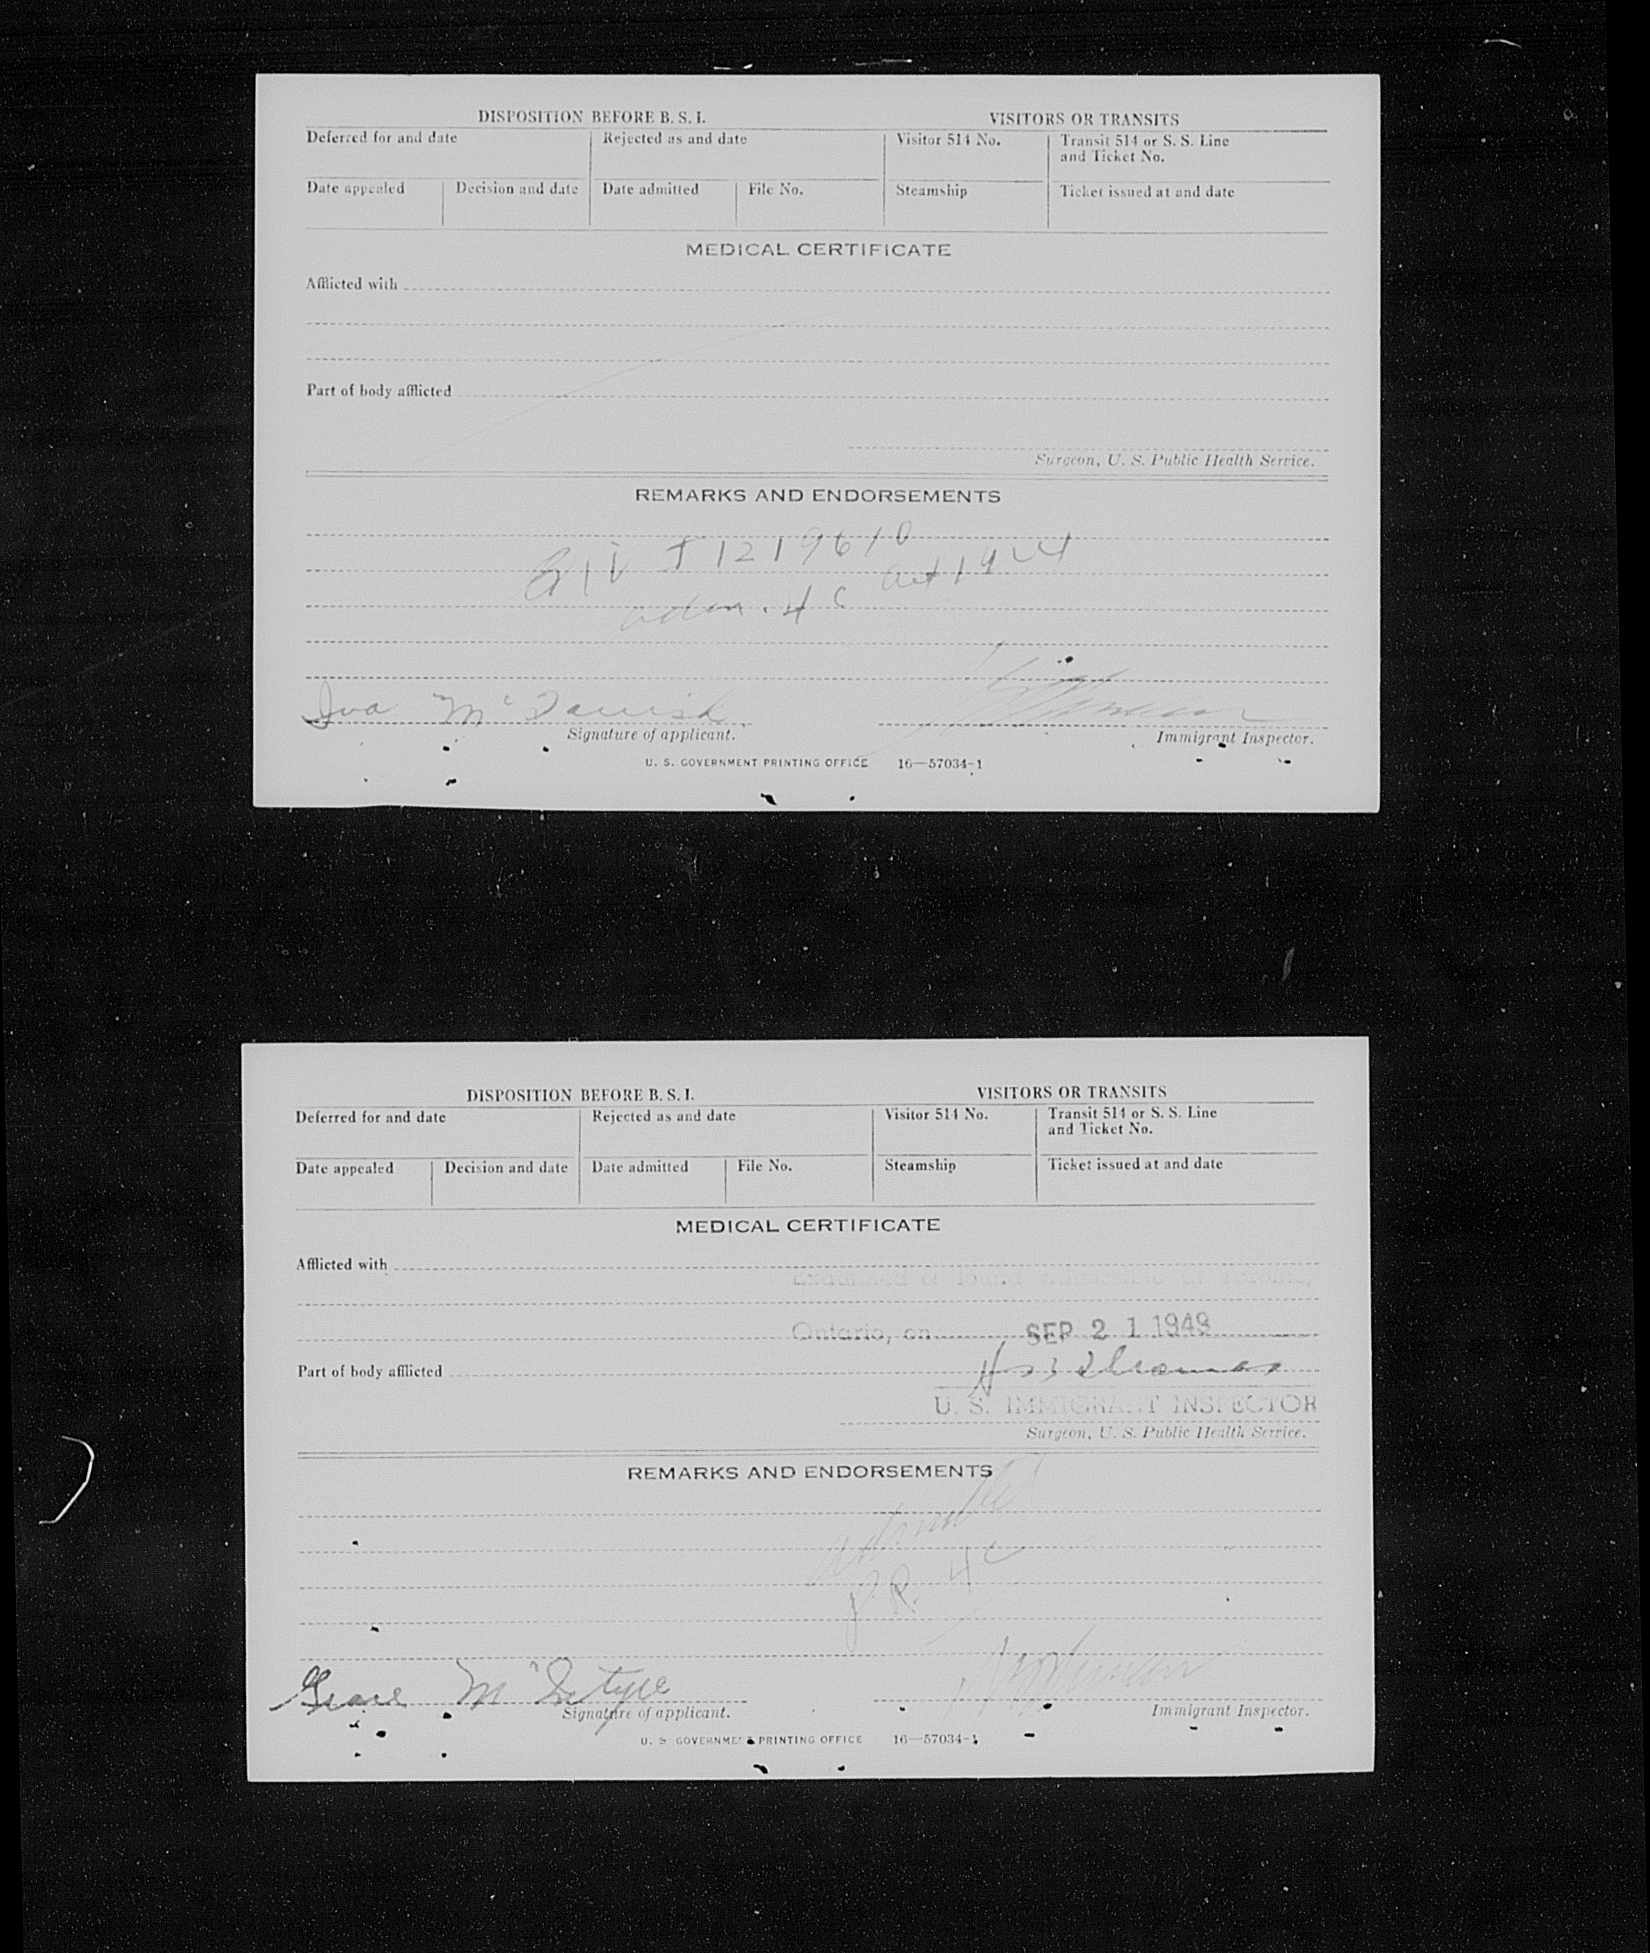 DISPOSITION BEFORE B. S. I. VISITORS OR TRANSITS
Deferred for and date Rejected as and date Visitor 514 No. Transit 514 or S. S. Line
and Ticket No.
Date appealed Decision and date Date admitted File No. Steamship Ticket issued at and date
MEDICAL CERTIFICATE
Afflicted with
Part of body afflicted
Surgeon, U. S. Public Health Service.
REMARKS AND ENDORSEMENTS
1219610
adm. 4 c act 1924
Iva Mc
Signature of applicant. Immigrant Inspector.
U. S. GOVERNMENT PRINTING OFFICE 16—57034-1
DISPOSITION BEFORE B. S. I. VISITORS OR TRANSITS
Deferred for and date Rejected as and date Visitor 514 No. Transit 514 or S. S. Line
and Ticket No.
Date appealed Decision and date Date admitted File No. Steamship Ticket issued at and date
MEDICAL CERTIFICATE
Afflicted with
Ontario, on SEP 21 1949
Part of body afflicted
U. S. IMMIGRANT INSPECTOR
Surgeon, U. S. Public Health Service.
REMARKS AND ENDORSEMENTS
admitted
P.R. 4c
Grace McIntyre
Signature of applicant. Immigrant Inspector.
U. S. GOVERNMENT PRINTING OFFICE 16—57034-1